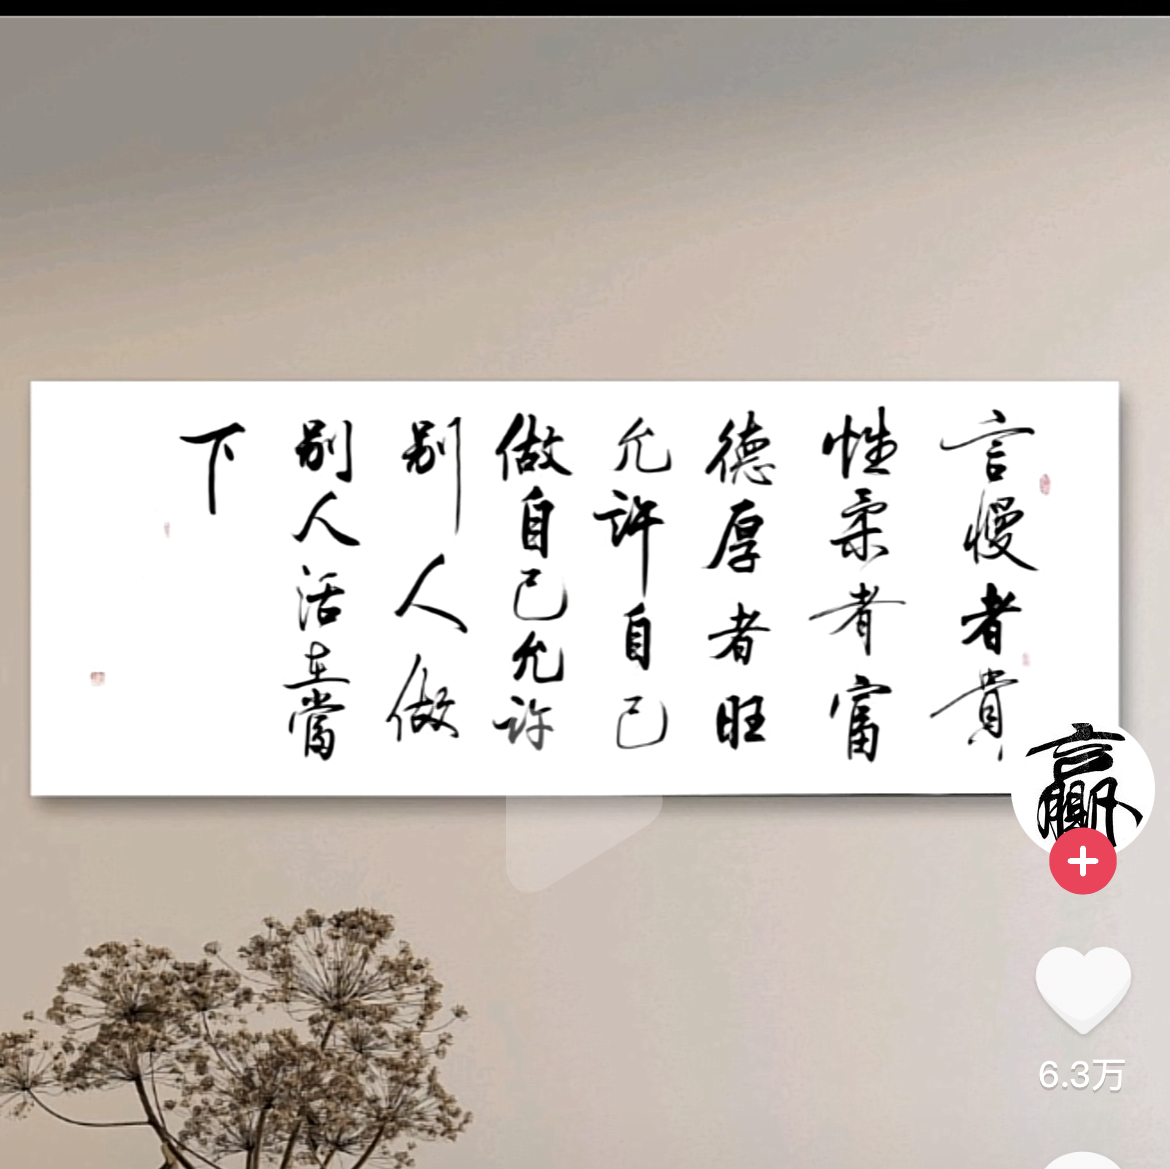 言慢者貴
性柔者富
德厚者旺
允许自己
做自己允许
别人做
别人活在當
下
贏
6.3万